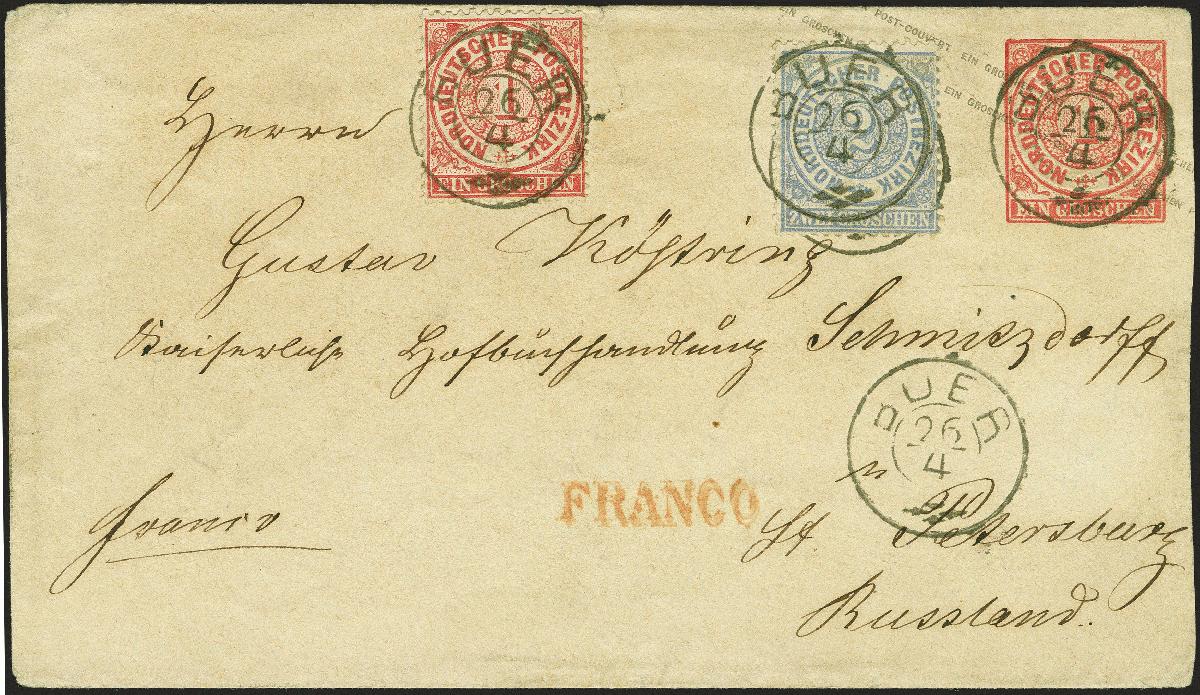 EIN GROSCHEN POST-COUVERT EIN GROSCHEN
NORDDEUTSCHER POSTBEZIRK
1
EIN GROSCHEN
NORDDEUTSCHER POSTBEZIRK
2
ZWEI GROSCHEN
NORDDEUTSCHER POSTBEZIRK
1
EIN GROSCHEN
BUER
26
4
BUER
26
4
BUER
26
4
Herrn
Gustav Köstring
Kaiserliche Hofbuchhandlung Schmitzdorff
BUER
26
4
in
FRANCO
Franco
St Petersburg
Russland.